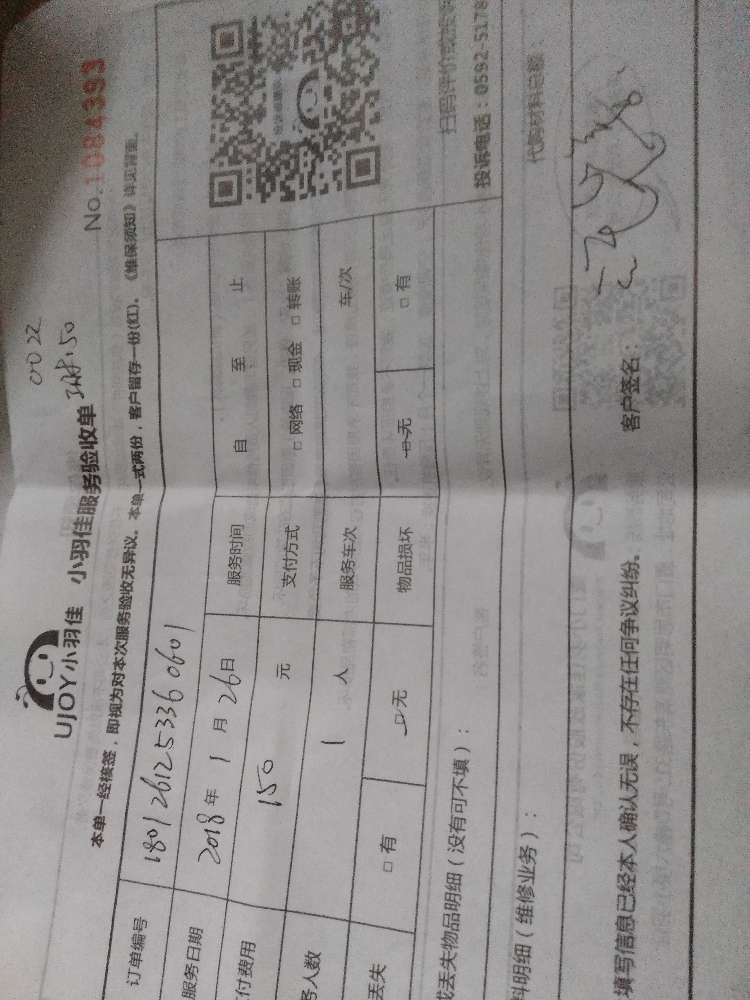 0022
UJOY小羽佳 小羽佳服务验收单
150
No.1084393
本单一经核签，即视为对本次服务验收无异议。本单一式两份，客户留存一份(红)。《维保须知》详见背面。
订单编号 180126125336 0601
服务日期 2018年 1月 26日 服务时间 自 至 止
付费用 150 元 支付方式 □网络 □现金 □转账
务人数 1 人 服务车次 车/次
丢失 □有 □无 物品损坏 □无 □有
扫码评价或投诉
投诉电话：0592-5178
或丢失物品明细（没有可不填）：
料明细（维修业务）： 代购材料总额：
填写信息已经本人确认无误，不存在任何争议纠纷。 客户签名：